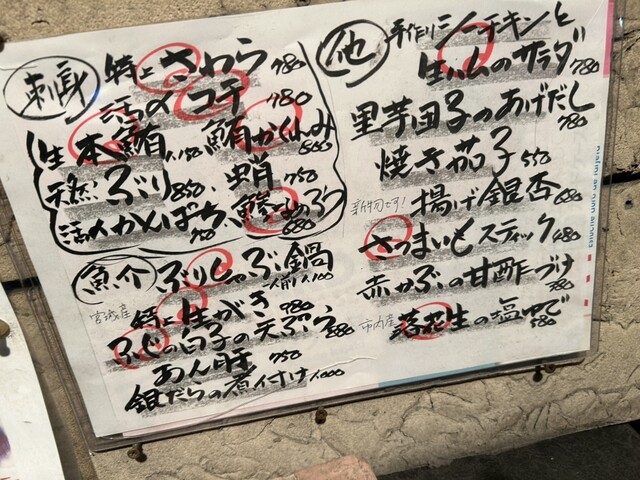 刺身
特上 さわら 780
活〆 コチ 780
生 本鮪 1,150 鮪かくれみ 800
天然 ぶり 850、蛸 750
活〆かんぱち、
680
魚介
ぶりしゃぶ鍋
一人前 1,100
宮城産 特上 生がき 980、
ふぐの白子の天ぷら 880
あん肝 750
銀だらの煮付け 1,000
他
手作りシーチキンと
生ハムのサラダ 780
里芋団子のあげだし 780
焼き茄子 550
新物です! 揚げ銀杏 680
さつまいもスティック 480
赤かぶの甘酢づけ 380
市内産 落花生の塩ゆで 580